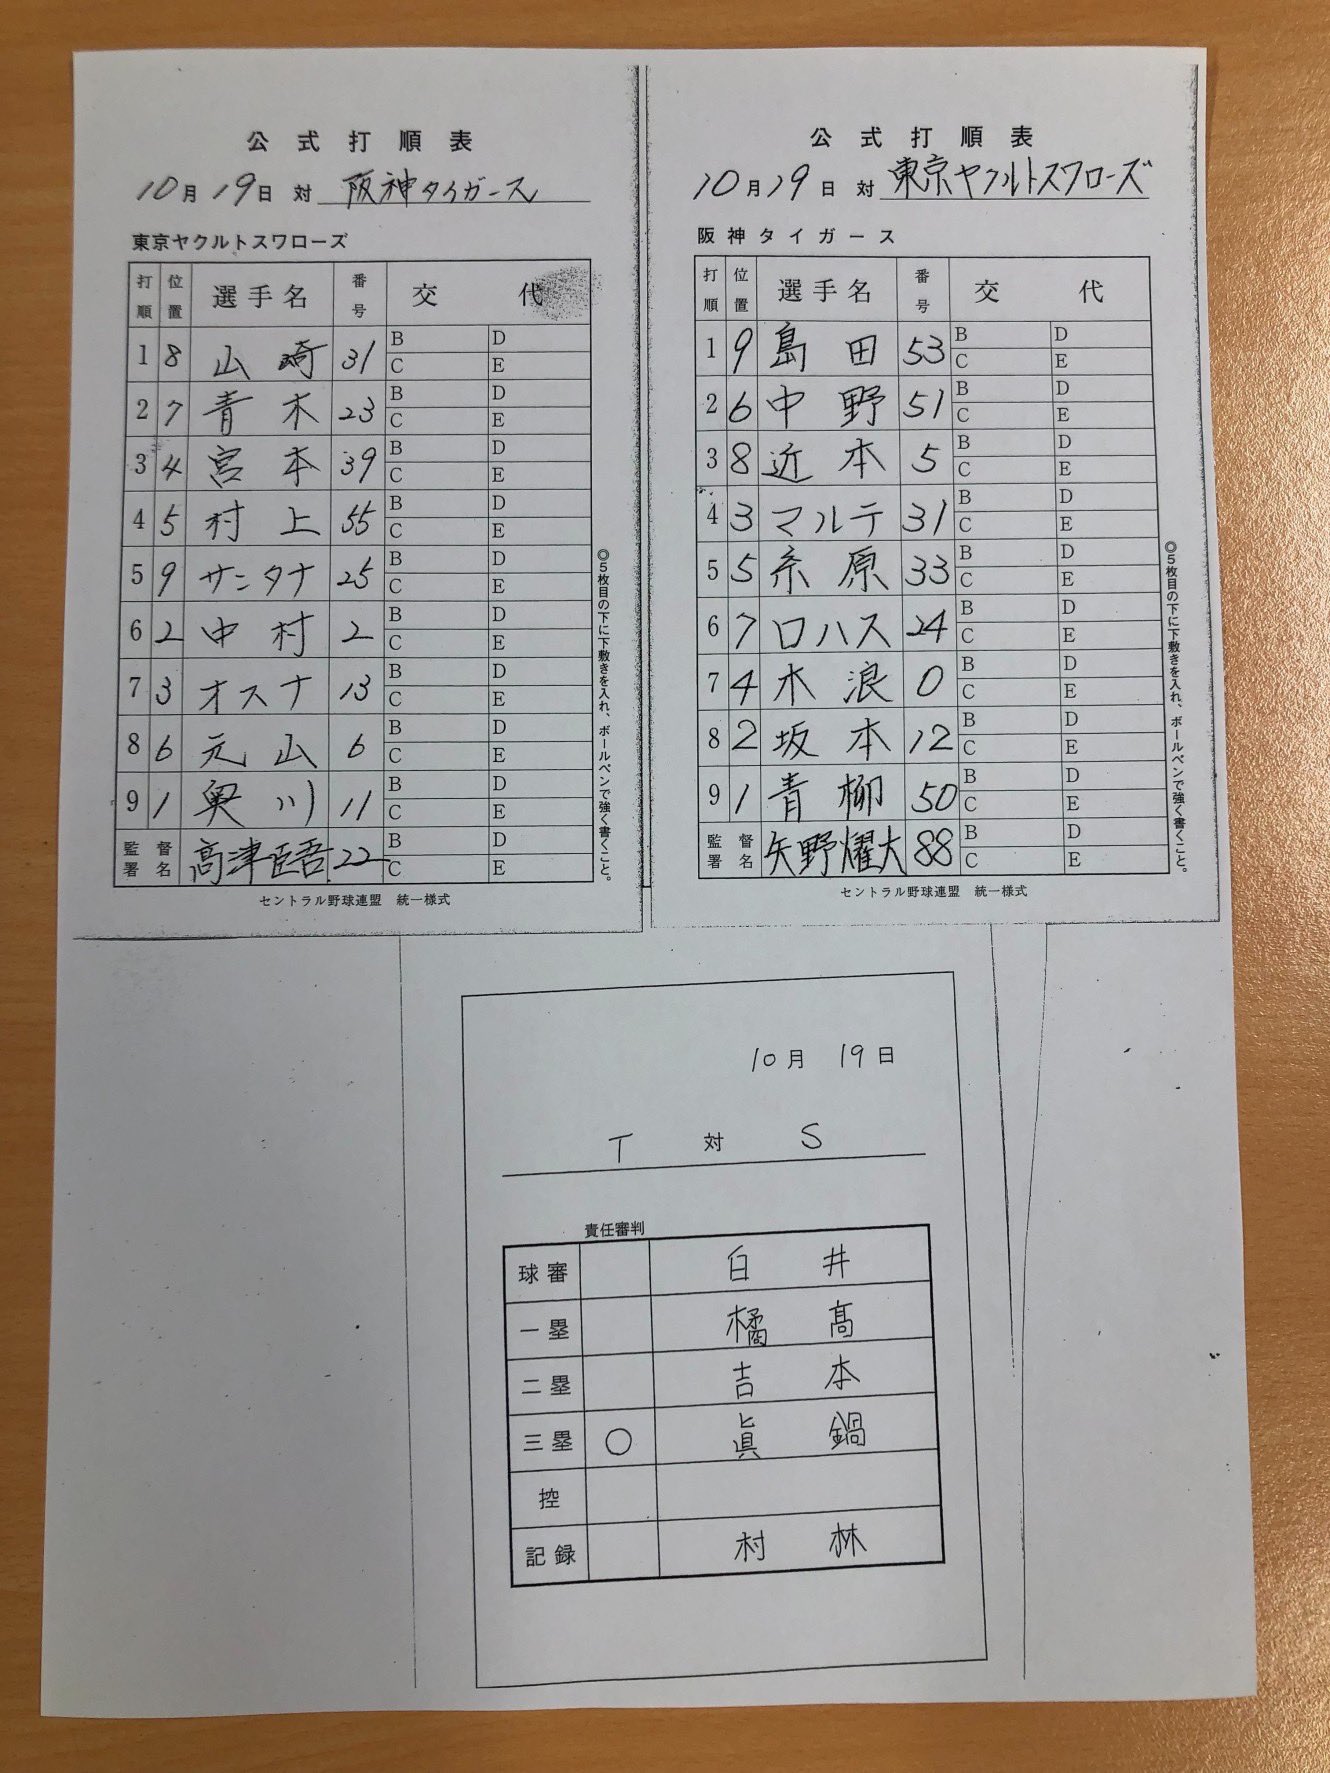 公式打順表
10月19日 対 阪神タイガース
東京ヤクルトスワローズ
打順 位置 選手名 番号 交代
1 8 山崎 31 B D C E
2 7 青木 23 B D C E
3 4 宮本 39 B D C E
4 5 村上 55 B D C E
5 9 サンタナ 25 B D C E
6 2 中村 2 B D C E
7 3 オスナ 13 B D C E
8 6 元山 6 B D C E
9 1 奥川 11 B D C E
監督署名 髙津臣吾 22 B D C E
セントラル野球連盟 統一様式
◎5枚目の下に下敷きを入れ、ボールペンで強く書くこと。
公式打順表
10月19日 対 東京ヤクルトスワローズ
阪神タイガース
打順 位置 選手名 番号 交代
1 9 島田 53 B D C E
2 6 中野 51 B D C E
3 8 近本 5 B D C E
4 3 マルテ 31 B D C E
5 5 糸原 33 B D C E
6 7 ロハス 24 B D C E
7 4 木浪 0 B D C E
8 2 坂本 12 B D C E
9 1 青柳 50 B D C E
監督署名 矢野燿大 88 B D C E
セントラル野球連盟 統一様式
◎5枚目の下に下敷きを入れ、ボールペンで強く書くこと。
10月 19日
T 対 S
責任審判
球審 白井
一塁 橘髙
二塁 吉本
三塁 ○ 眞鍋
控
記録 村林